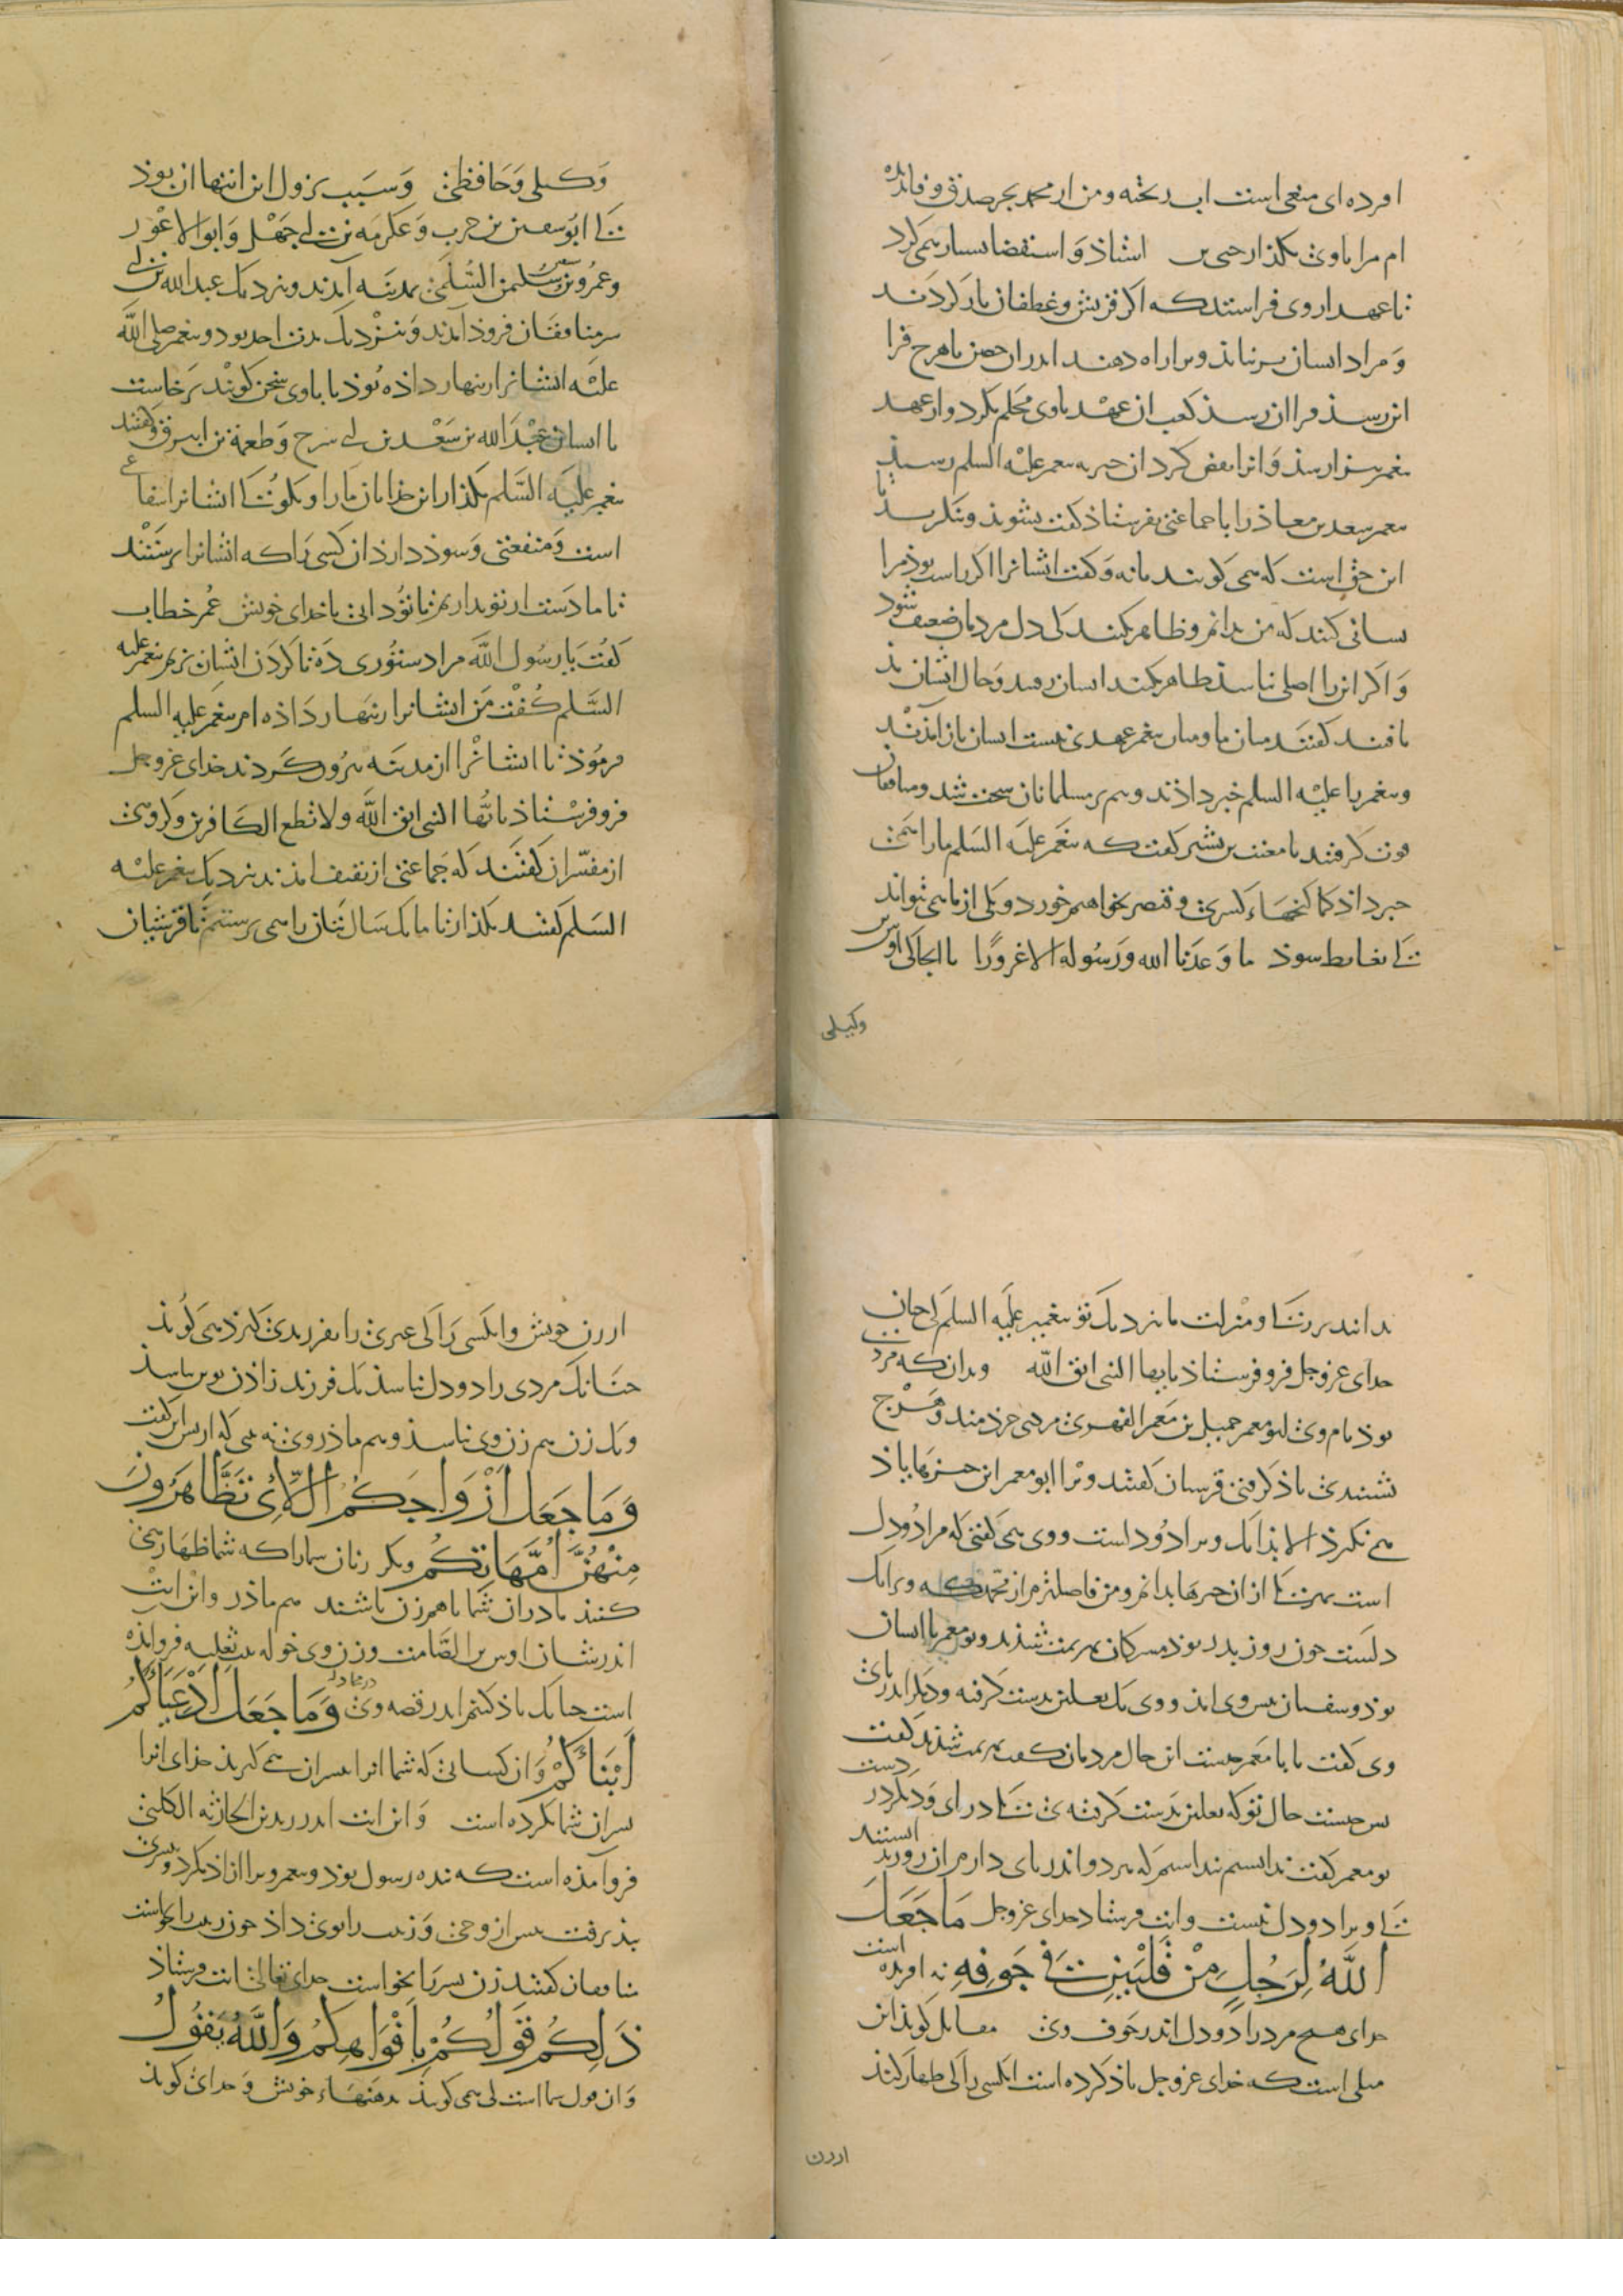 اورده ای میغی است اب ریخته و من از محمد بجز صدق و وفا ندیده
ام مرا با وی بگذار حیی بن استاذ و استقصا بسیار همی کرد
تا عهد از وی فراستد که اگر قریش و غطفان بازگردند
و مراد ایشان برنیاید ویرا راه دهند اندران حصن تا هرچ فرا
این رسد فرا ان رسد کعب ان عهد با وی محکم بکرد و از عهد
پیغمبر بیزار شد و انرا نقض کرد ان خبر به پیغمبر علیه السلم رسید
پیغمبر سعد بن معاذ را با جماعتی بفرستاد گفت بشوید و بنگرید تا
این حق است که همی گویند یا نه و گفت ایشانرا اگر راست بود مرا
نشانی کنید که من بدانم و ظاهر مکنید کی دل مردمان ضعیف شود
و اگر انرا اصلی نباشد ظاهر بکنید ایشان برفتند و حال ایشان بد
یافتند گفتند میان ما و میان پیغمبر عهدی نیست ایشان باز آمدند
و پیغمبر را علیه السلم خبر دادند و هم بر مسلمانان سخت شد و منافقان
قوت گرفتند تا معتب بن بشیر گفت که پیغمبر علیه السلم ما را همی
خبر داد کما گنجهاء کسری و قیصر بخواهیم خورد و یکی از ما نمی تواند
کی بغایط شود ما وعدنا الله ورسوله الا غرورا تا انجا کی اوس
وکیلی
وکیلی و حافظی و سبب نزول این ایتها ان بوذ
کی ابو سفین بن حرب و عکرمه بن ابی جهل و ابو الاعور
و عمرو بن سفین السلمی بمدینه آمدند و نزدیک عبد الله بن ابی
سر منافقان فروذ آمدند و نزدیک بدن احد بود و پیغمبر صلی الله
علیه ایشانرا زنهار داذه بوذ تا با وی سخن گویند برخاست
با ایشان عبد الله بن سعد بن ابی سرح و طعمة بن ابیرق و گفتند
پیغمبر علیه السلم بگذار این خدایان ما را و بگوی کی ایشانرا شفاعی
است و منفعتی و سوذ دارذ ان کسی را که ایشانرا پرستند
تا ما دست از تو بداریم تا تو دانی با خدای خویش عمر خطاب
گفت یا رسول الله مرا دستوری ده تا گردن ایشان بزنم پیغمبر علیه
السلم گفت من ایشانرا زنهار داذه ام پیغمبر علیه السلم
فرموذ تا ایشانرا از مدینه بیرون کردند خدای عز و جل
فرو فرستاذ یا ایها النبی اتق الله ولا تطع الکافرین و گروهی
از مفسران گفتند که جماعتی از ثقیف امدند نزدیک پیغمبر علیه
السلم گفتند بگذار تا ما یک سال بتان را همی پرستیم تا قریشیان
بدانند برتری و منزلت ما نزدیک تو پیغمبر علیه السلم
خدای عز و جل فرو فرستاذ یا ایها النبی اتق الله و بدان که مردی
بوذ نام وی ابو معمر جمیل بن معمر الفهری مردی خردمند و هرچ
بشنیدی یاذ گرفتی قریشیان گفتند ویرا ابو معمر این چیزها یاذ
می نگیرذ الا بدانک ویرا دو دل است و وی همی گفتی که مرا دو دل
است بهر یکی از ان چیزها بدانم و من فاضلترم از محمد که ویرا یک
دلست چون روز بدر بوذ مشرکان بهزیمت شذند و بو معمر با ایشان
بوذ بو سفیان پیش وی امذ و وی یک نعلین بدست گرفته و دیگر اندر پای
وی گفت یا با معمر چیست این حال مردمان گفت بهزیمت شذند گفت
پس چیست حال تو که نعلین بدست گرفته ی یکی در پای و دیگر در دست
بو معمر گفت ندانستم پنداشتم که هر دو اندر پای دارم ان روز بدانستند
کی ویرا دو دل نیست و ایت فرستاد خدای عز و جل مَا جَعَلَ
اللَّهُ لِرَجُلٍ مِنْ قَلْبَيْنِ فِي جَوْفِهِ نه افریده است
خدای هیچ مرد را دو دل اندر جوف وی مقاتل گوید این
مثلی است که خدای عز و جل یاذ کرده است انکسی را کی ظهار کند
از زن
از زن خویش و انکسی را کی غیری را بفرزندی گیرذ همی گویذ
چنانک مردی را دو دل نباشد یک فرزند زاذن دو پدر نباشد
و یک زن هم زن وی نباشد و هم ماذر وی نه بینی که از پس این گفت
وَمَا جَعَلَ أَزْوَاجَكُمُ اللَّائِي تَظَّاهَرُونَ
مِنْهُنَّ أُمَّهَاتِكُمْ و نکرد زنان شما را که شما ظهار همی
کنید ماذران شما تا هم زن باشند هم ماذر و این ایت
اندر شان اوس بن الصامت و زن وی خوله بنت ثعلبه فرو امذه
است چنانک یاذ کنیم اندر قصه وی در مجادله وَمَا جَعَلَ أَدْعِيَاءَكُمْ
أَبْنَاءَكُمْ و ان کسانی که شما انرا پسران می گیرید خدای انرا
پسران شما نکرده است و این ایت اندر زید بن الحارثه الکلبی
فرو آمذه است که بنده رسول بوذ و پیغمبر ویرا ازاذ بکرد و بپسری
بپذیرفت پیش از وحی و زینب را بوی داذ چون زینب را بخواست
منافقان گفتند زن پسر را بخواست خدای تعالی ایت فرستاذ
ذَلِكُمْ قَوْلُكُمْ بِأَفْوَاهِكُمْ وَاللَّهُ يَقُولُ
و ان قول شما است کی همی گویید بدهنهاء خویش و خدای گویذ